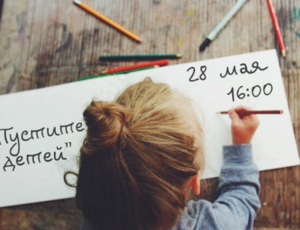 "Пустите
детей"
28 мая
16:00